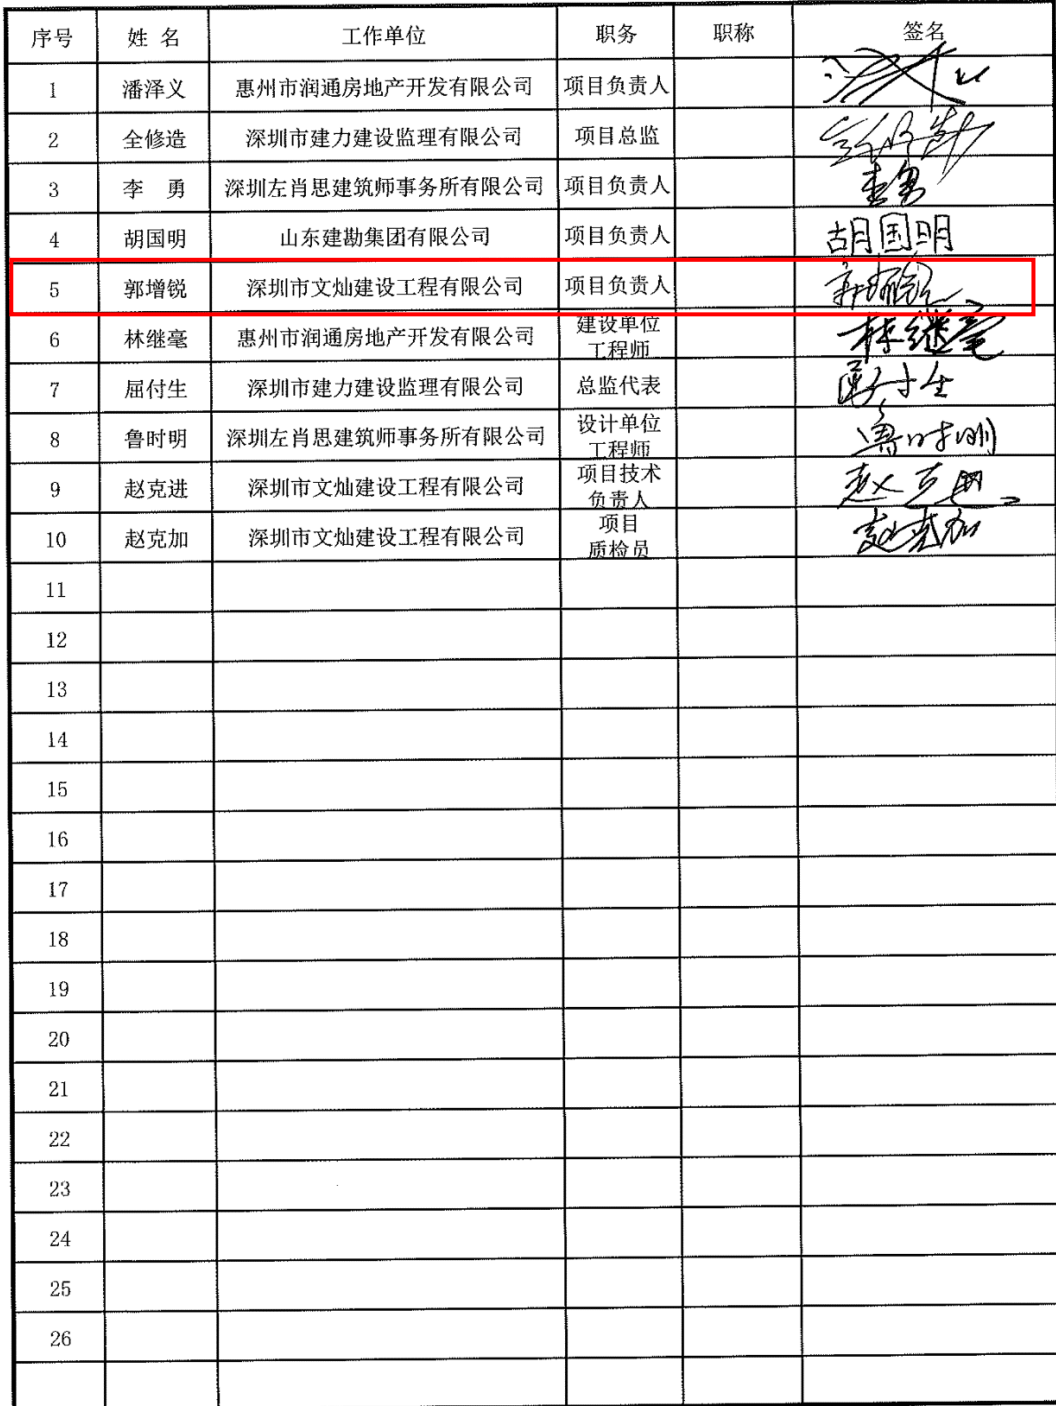 序号 姓 名 工作单位 职务 职称 签名
1 潘泽义 惠州市润通房地产开发有限公司 项目负责人
2 全修造 深圳市建力建设监理有限公司 项目总监
3 李 勇 深圳左肖思建筑师事务所有限公司 项目负责人 李勇
4 胡国明 山东建勘集团有限公司 项目负责人 胡国明
5 郭增锐 深圳市文灿建设工程有限公司 项目负责人
6 林继毫 惠州市润通房地产开发有限公司 建设单位 林继毫
工程师
7 屈付生 深圳市建力建设监理有限公司 总监代表
8 鲁时明 深圳左肖思建筑师事务所有限公司 设计单位 鲁时明
工程师
9 赵克进 深圳市文灿建设工程有限公司 项目技术
负责人
10 赵克加 深圳市文灿建设工程有限公司 项目 赵克加
质检员
11
12
13
14
15
16
17
18
19
20
21
22
23
24
25
26